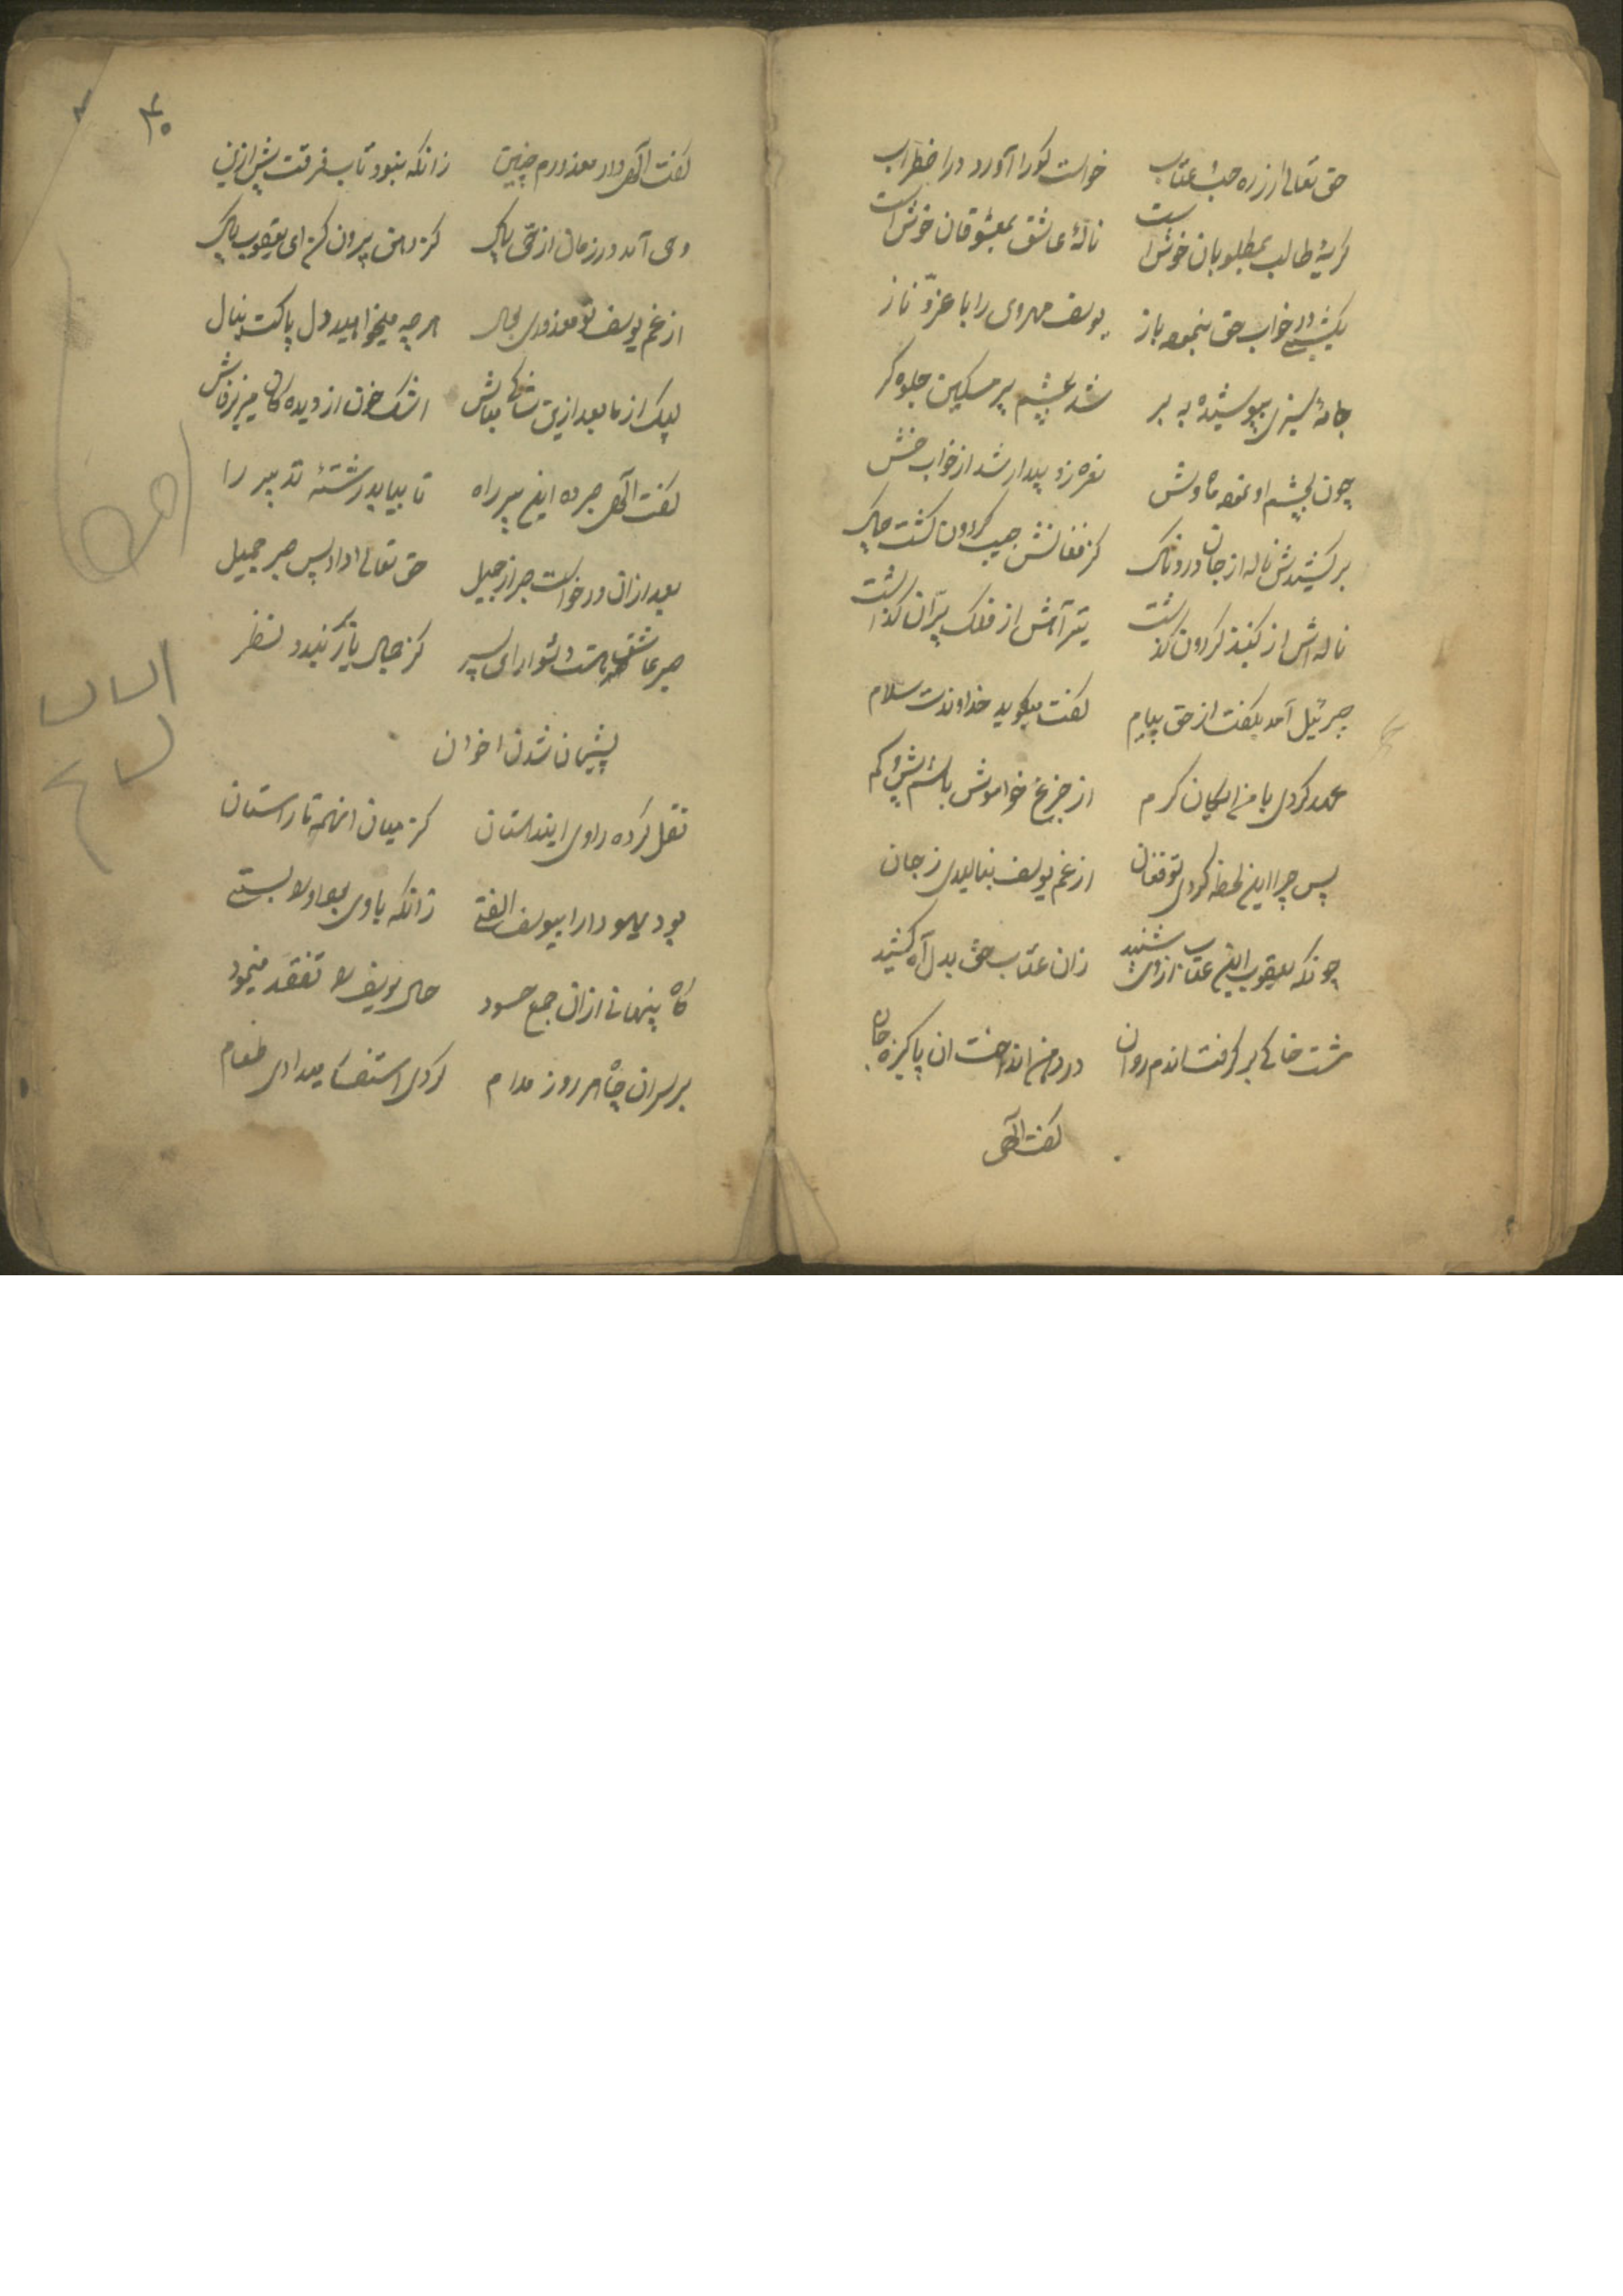 حق تعالی از ره حب عتاب خواست کورا آورد در اضطراب
کریهٔ طالب بمطلوبان خوش است نالهٔ عاشق بمعشوقان خوش است
یکشبی در خواب حق بنمود باز یوسف مهروی را با عز و ناز
جامهٔ سبزی بپوشیده به بر شد بچشم پیر مسکین جلوه کر
چون بچشم او نمود ماه وش نعره زد بیدار شد از خواب خش
برکشیدش ناله از جان دردناک کز فغانش جیب کردون کشت چاک
ناله اش از کنبذ کردون کذشت تیر آهش از فلک پران کذشت
جبرئیل آمد بکفت از حق پیام کفت میکوید خداوندت سلام
عهد کردی با من ای کان کرم از جزع خواموش باشم بیش و کم
پس چرا این لحظه کردی تو فغان از غم یوسف بنالیدی ز جان
چونکه یعقوب این عتاب از وی شنید زان عتاب حق بدل آه کشید
مشت خاکی بر کرفت اندم روان در دهن انداخت ان پاکیزه جان
کفت الهی
۳۰
کفت الهی دار معذورم چنین زانکه نبود تاب فرقت بیش ازین
وحی آمد در زمان از حی پاک کز دهن بیرون کن ای یعقوب خاک
از غم یوسف تو معذوری بحال هر چه میخواهد دل پاکت بنال
لیک از ما بعد ازین شاکی مباش اشک خون از دیده کان میریز فاش
کفت الهی صبر ده این پیر را تا بیابد رشتهٔ تدبیر را
بعد ازان درخواست صبر از جلیل حق تعالی داد پس صبر جمیل
صبر عاشق هست دشوار ای پسر کز جمال یار کیرد نظر
پشیمان شدن اخوان
نقل کرده راوی این داستان کز میان انهمه ناراستان
بود یهودا را بیوسف الفتی زانکه با وی بود او را بستی
کاه پنهانی ازان جمع حسود حال یوسف را تفقد مینمود
بر سر ان چاه هر روز مدام کردی استفسار میدادی طعام